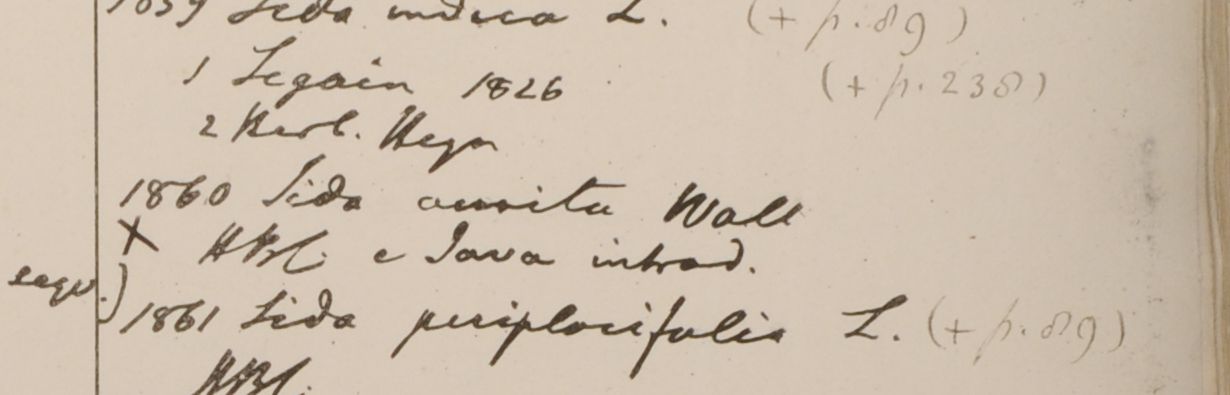 1859 Sida indica L. (+ p. 89)
1 Segain 1826 (+ p. 238)
2 Herb. Heyn
1860 Sida aurita Wall
X HBC. e Java introd.
1861 Sida periplocifolia L. (+ p. 89)
HBC.